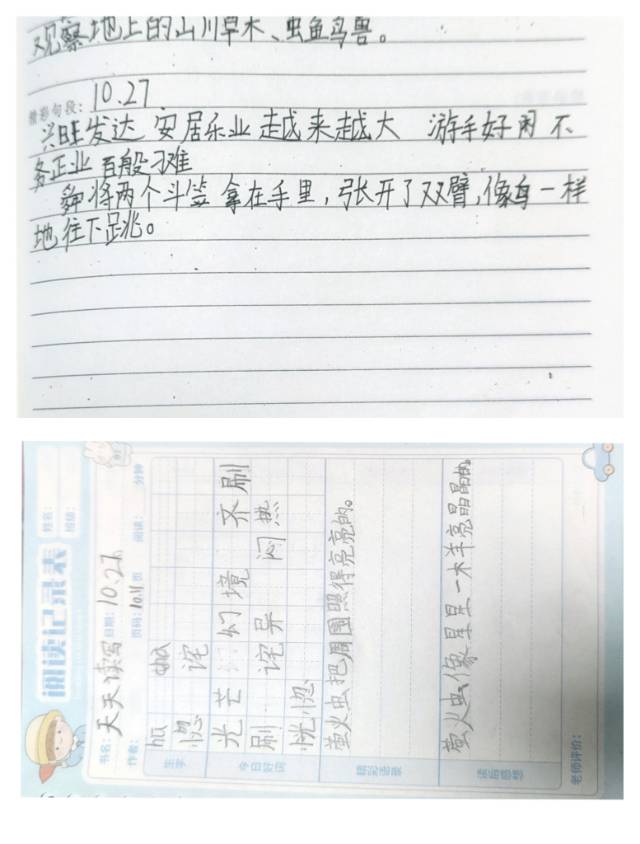 观察地上的山川草木、虫鱼鸟兽。
精彩句段：10.27
兴旺发达 安居乐业 越来越大 游手好闲 不
务正业 百般刁难
舜将两个斗笠拿在手里，张开了双臂，像鸟一样
地往下跳。
阅读记录表
姓名：
班级：
书名：天天读写 日期：10.27
作者： 页码：10.11页 阅读： 分钟
生字
诧
今日好词
光芒 幻境 齐刷
刷 诧异 闷热
恍惚
精彩语录
萤火虫把周围照得亮亮的。
读后感想
萤火虫像星星一样亮晶晶的。
老师评价：